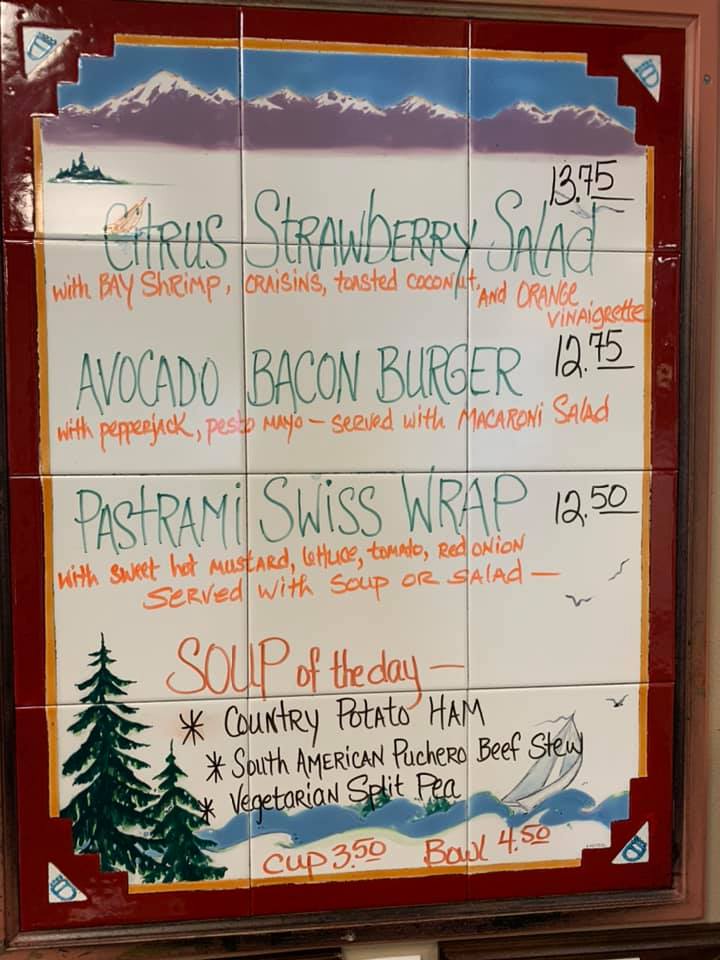 13.75
Citrus Strawberry Salad
with Bay Shrimp, Craisins, toasted coconut, and Orange
Vinaigrette
Avocado Bacon Burger 12.75
with pepperjack, pesto mayo – served with Macaroni Salad
Pastrami Swiss Wrap 12.50
with sweet hot mustard, lettuce, tomato, red onion
served with soup or salad –
Soup of the day –
* Country Potato Ham
* South American Puchero Beef Stew
* Vegetarian Split Pea
Cup 3.50 Bowl 4.50